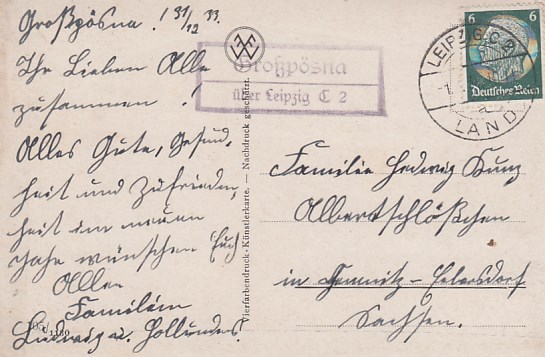 Großpösna. 1 31/12 33.
Ihr Lieben Alle
zusammen!
Alles Gute, Gesund-
heit und Zufrieden-
heit im neuen
Jahr wünschen Euch
Allen
Familien
Ludwig u. Hollunder.
Großpösna
über Leipzig C 2
Vierfarbendruck-Künstlerkarte. — Nachdruck geschützt.
6 6
Deutsches Reich
LEIPZIG C 2
LAND
Familie Hedwig Kunz
Albertschlößchen
in Chemnitz-Ebersdorf
Sachsen.